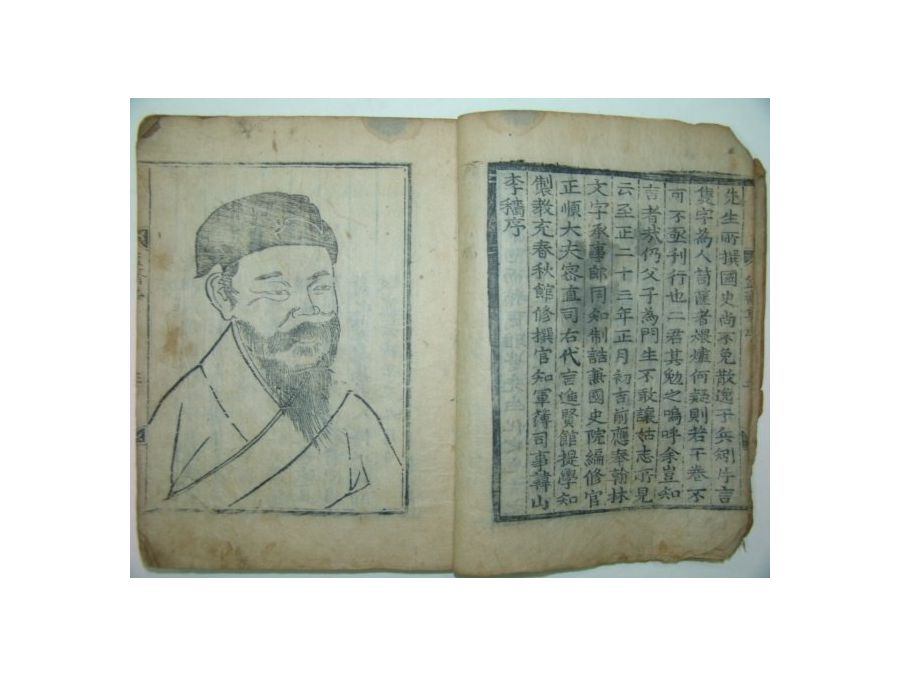 先生所撰國史尚不免散逸于兵刦片言
隻字為人笥篋者煨燼何疑則若干卷不
可不亟刊行也二君其勉之嗚呼余豈知
言者哉仍父子為門生不敢讓姑志所見
云至正二十三年正月初吉前應奉翰林
文字承事郎同知制誥蕭國史院編修官
正順大夫密直司右代言進賢館提學知
製教充春秋館修撰官知軍簿司事韓山
李穡序